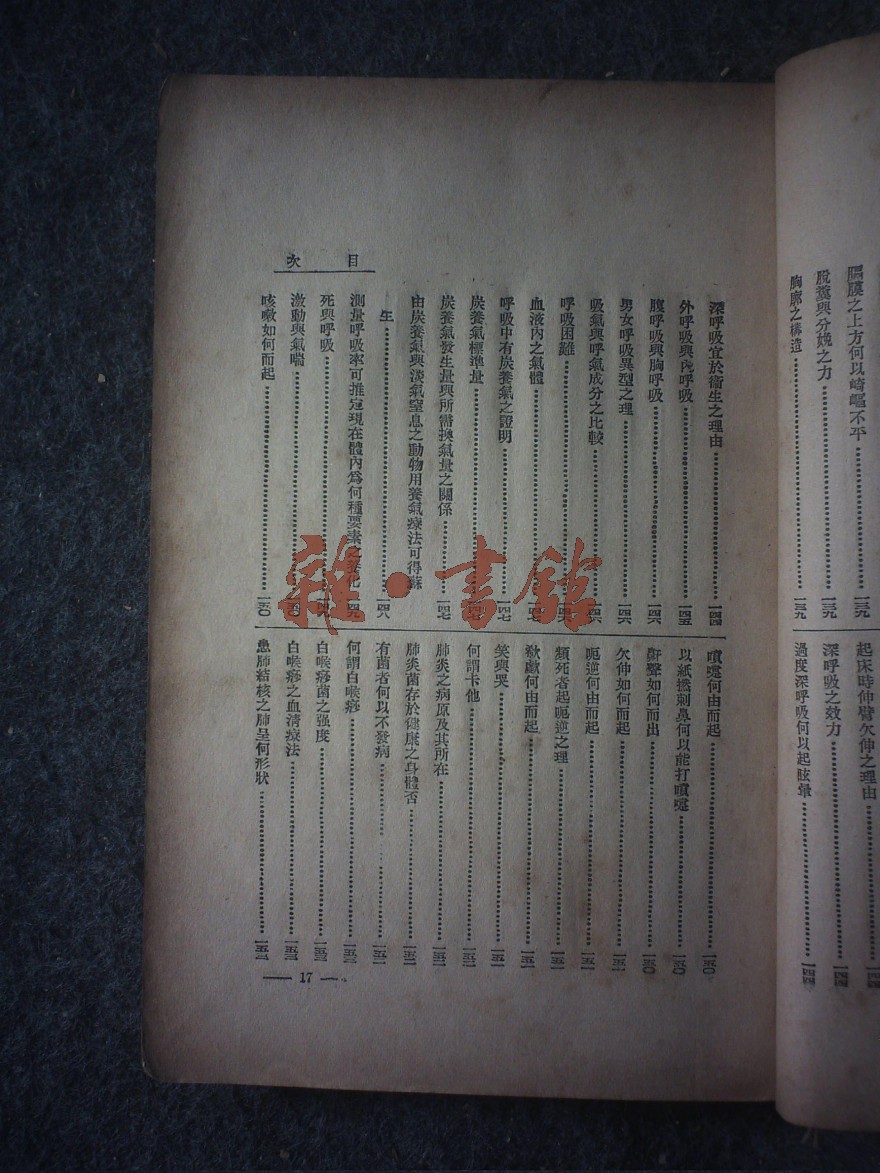 胸膜之上方何以崎嶇不平……一三九
脫糞與分娩之力……一三九
胸廓之構造……一三九
起床時伸臂欠伸之理由……一四四
深呼吸之效力……一四四
過度深呼吸何以起眩暈……一四四
目次
深呼吸宜於衞生之理由……一四四
外呼吸與內呼吸……一四五
腹呼吸與胸呼吸……一四六
男女呼吸異型之理……一四六
吸氣與呼氣成分之比較……一四六
呼吸困難……一四六
血液內之氣體……一四七
呼吸中有炭養氣之證明……一四七
炭養氣標準量……一四七
炭養氣發生量與所需換氣量之關係……一四七
由炭養氣與淡氣窒息之動物用養氣療法可得蘇
生……一四八
測量呼吸率可推定現在體內爲何種要素之變化……一四九
死與呼吸……一四九
激動與氣喘……一五〇
咳嗽如何而起……一五〇
噴嚏何由而起……一五〇
以紙撚刺鼻何以能打噴嚏……一五〇
鼾聲如何而出……一五〇
欠伸如何而起……一五一
呃逆何由而起……一五一
類死者起呃逆之理……一五一
歔欷何由而起……一五一
笑與哭……一五一
何謂卡他……一五二
肺炎之病原及其所在……一五二
肺炎菌存於健康之身體否……一五二
有菌者何以不發病……一五二
何謂白喉疹……一五三
白喉疹菌之强度……一五三
白喉疹之血清療法……一五三
患肺結核之肺呈何形狀……一五三
— 17 —
雜·書館